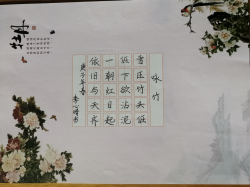 咏竹
雪压竹头低
低下欲沾泥
一朝红日起
依旧与天齐
庚子年春
牡丹